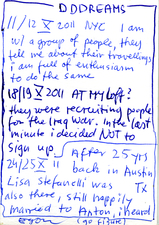 DDDREAMS
11/12 X 2011 NYC I am
w/ a group of people, they
tell me about their travellings
i am full of enthusiasm
to do the same
18/19 X 2011 AT MY loft?
they were recruiting people
for the Iraq War. In the last
minute i decided NOT to
sign up
After 25 yrs
24/25 X 11 back in Austin
TX
Lisa Stefanelli was
also there, still happily
married to Anton, i heard
(go figure)